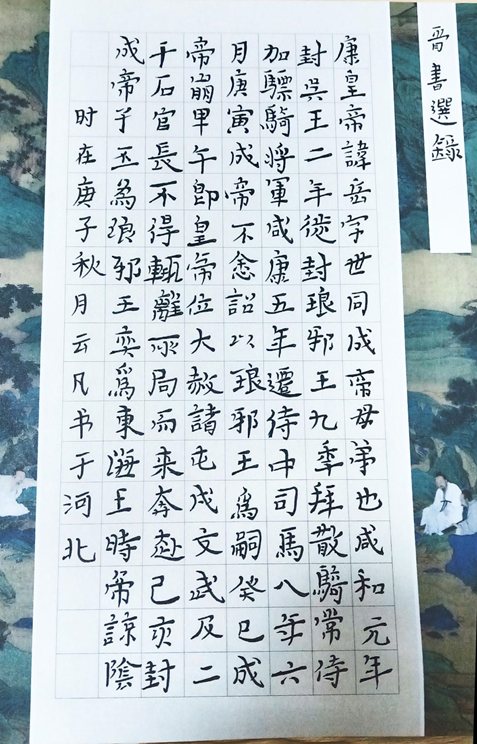 晉書選錄
康皇帝諱岳字世同成帝母弟也咸和元年
封吳王二年徙封琅邪王九秊拜散騎常侍
加驃騎將軍咸康五年遷侍中司馬八年六
月庚寅成帝不悆詔以琅邪王爲嗣癸巳成
帝崩甲午即皇帝位大赦諸屯戍文武及二
千石官長不得輒離所局而来奔赴己亥封
成帝子丕為琅邪王奕爲東海王時帝諒陰
时在庚子秋月云凡书于河北